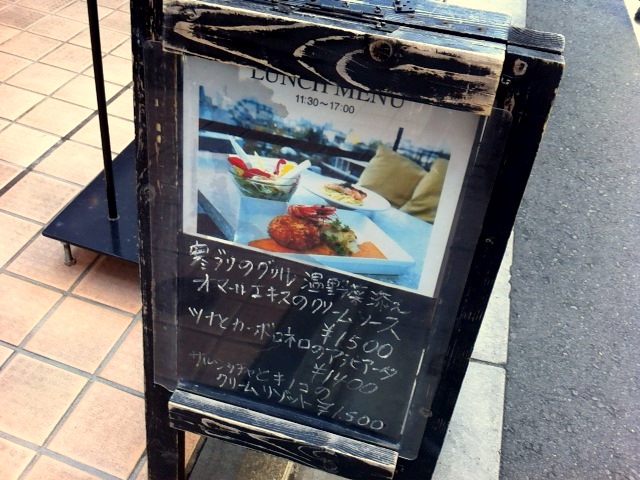 LUNCH MENU
11:30〜17:00
寒ブリのグリル 温野菜添え
オマールエキスのクリームソース
¥1500
ツナとカーボロネロのアラビアータ
¥1400
サルシッチャときノコの
クリームリゾット ¥1500